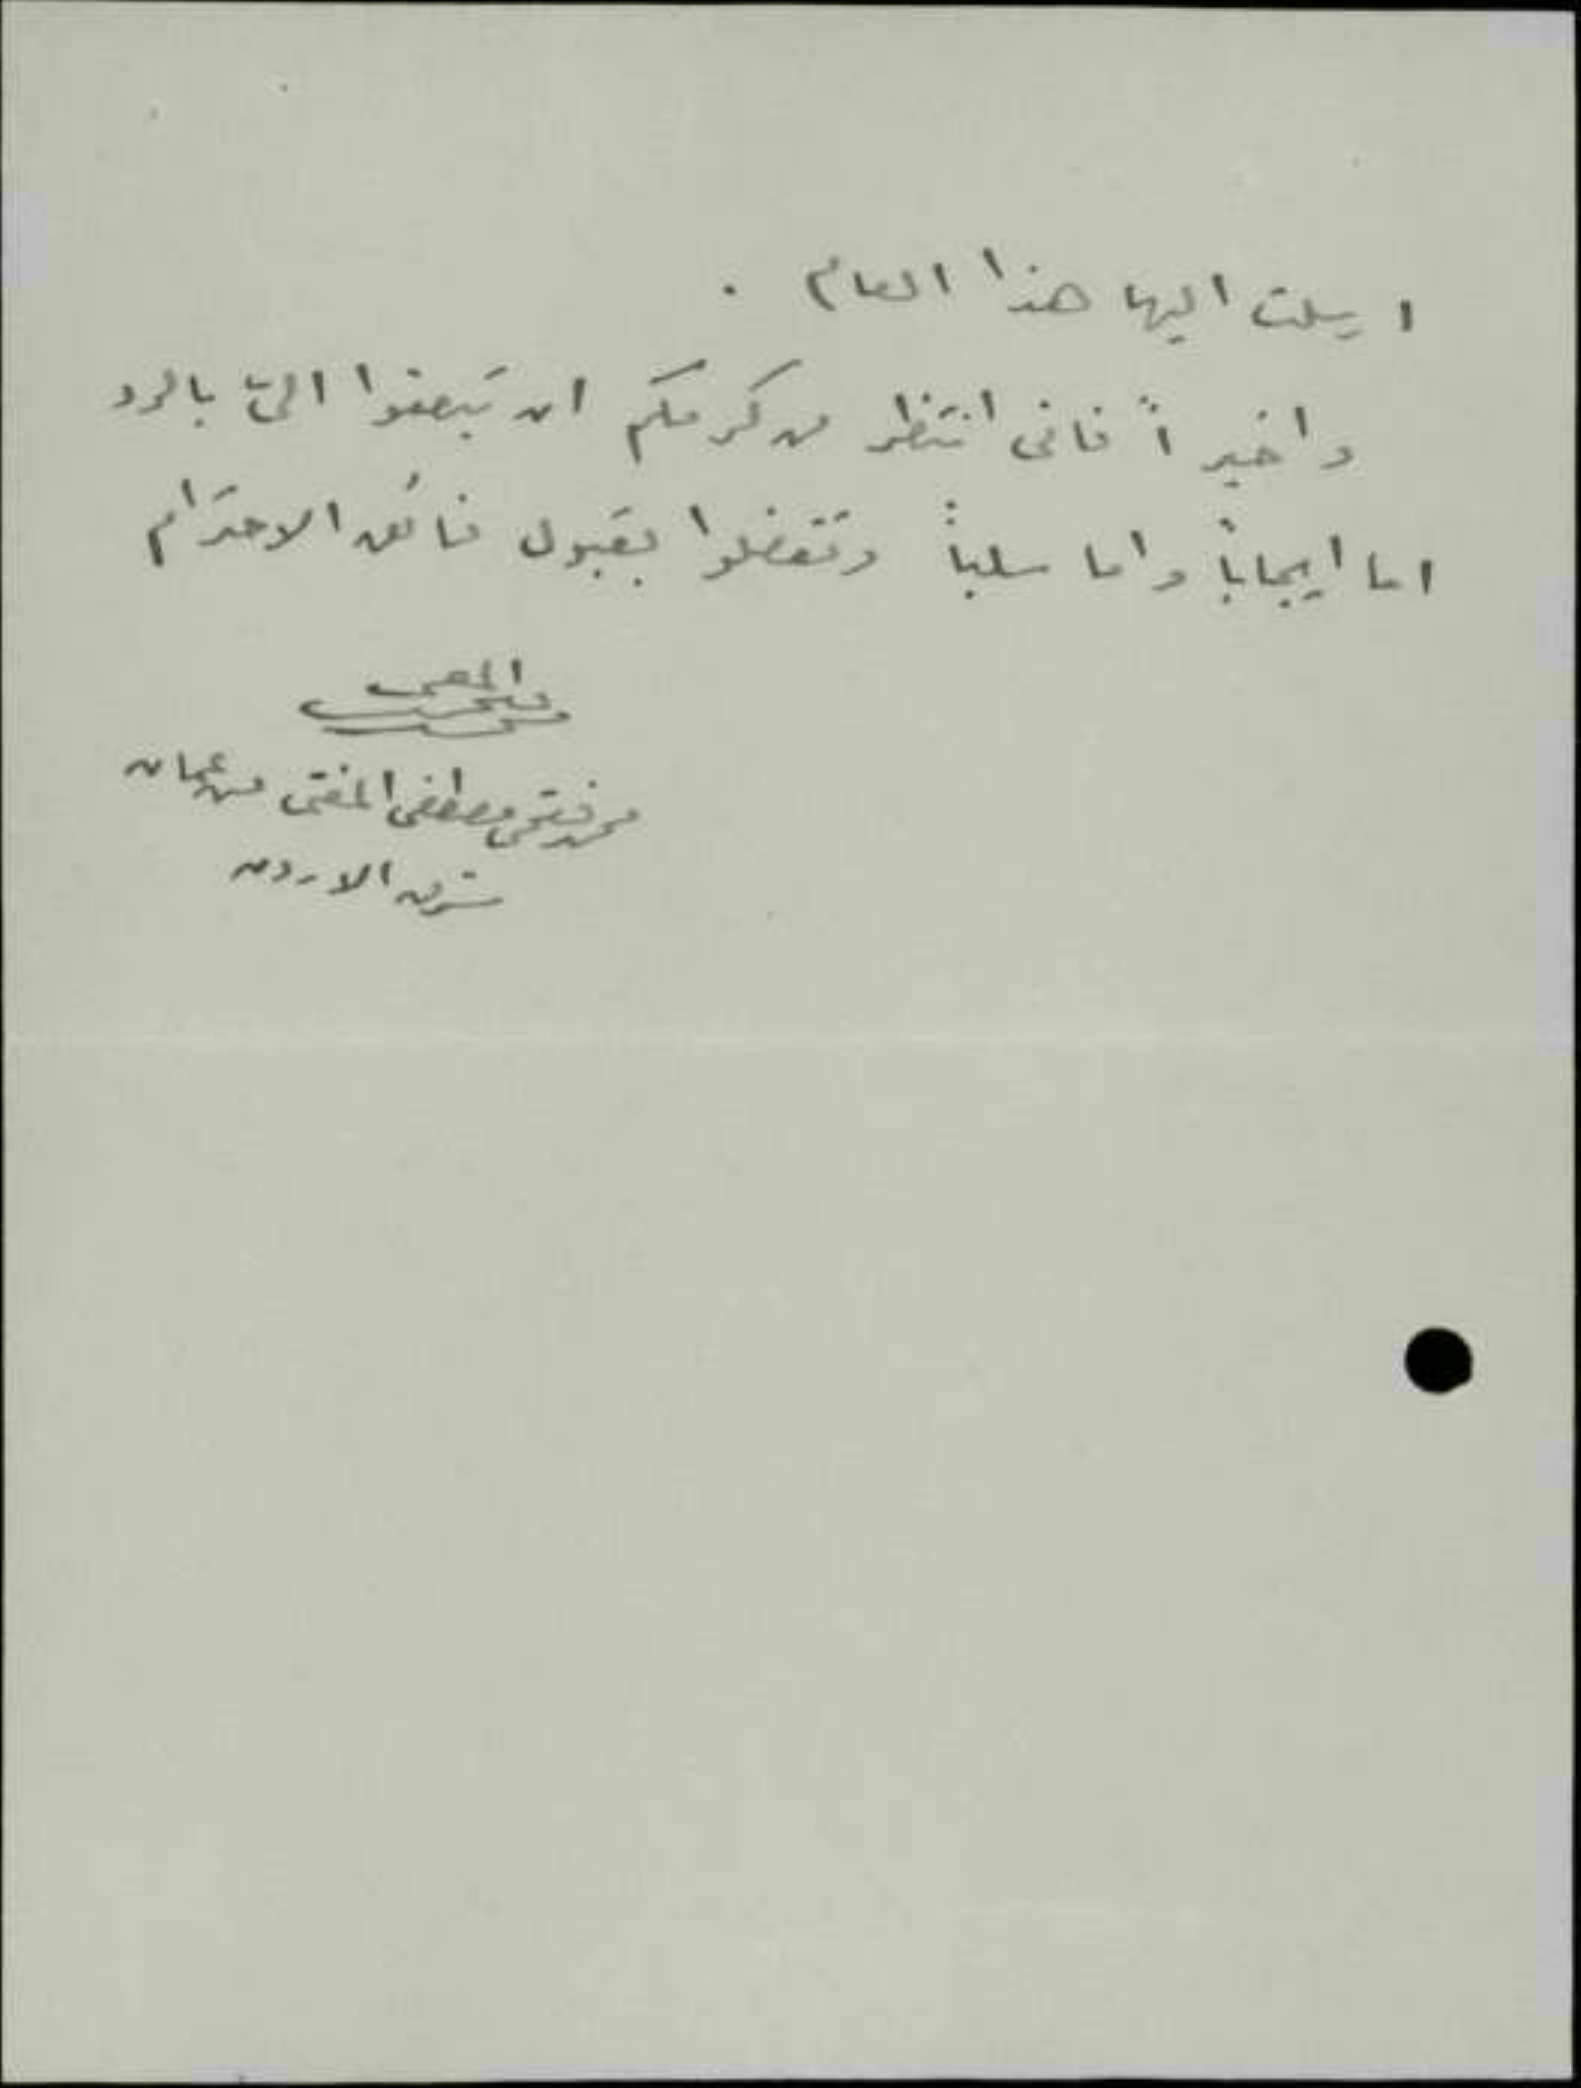 ارسلت اليها هذا العام .
واخيراً فانى انتظر من كرمكم ان تبعثوا الىّ بالرد
اما ايجاباً واما سلباً وتفضلوا بقبول فائق الاحترام
محمد فتحى مصطفى المفتى من عمان
شرق الاردن